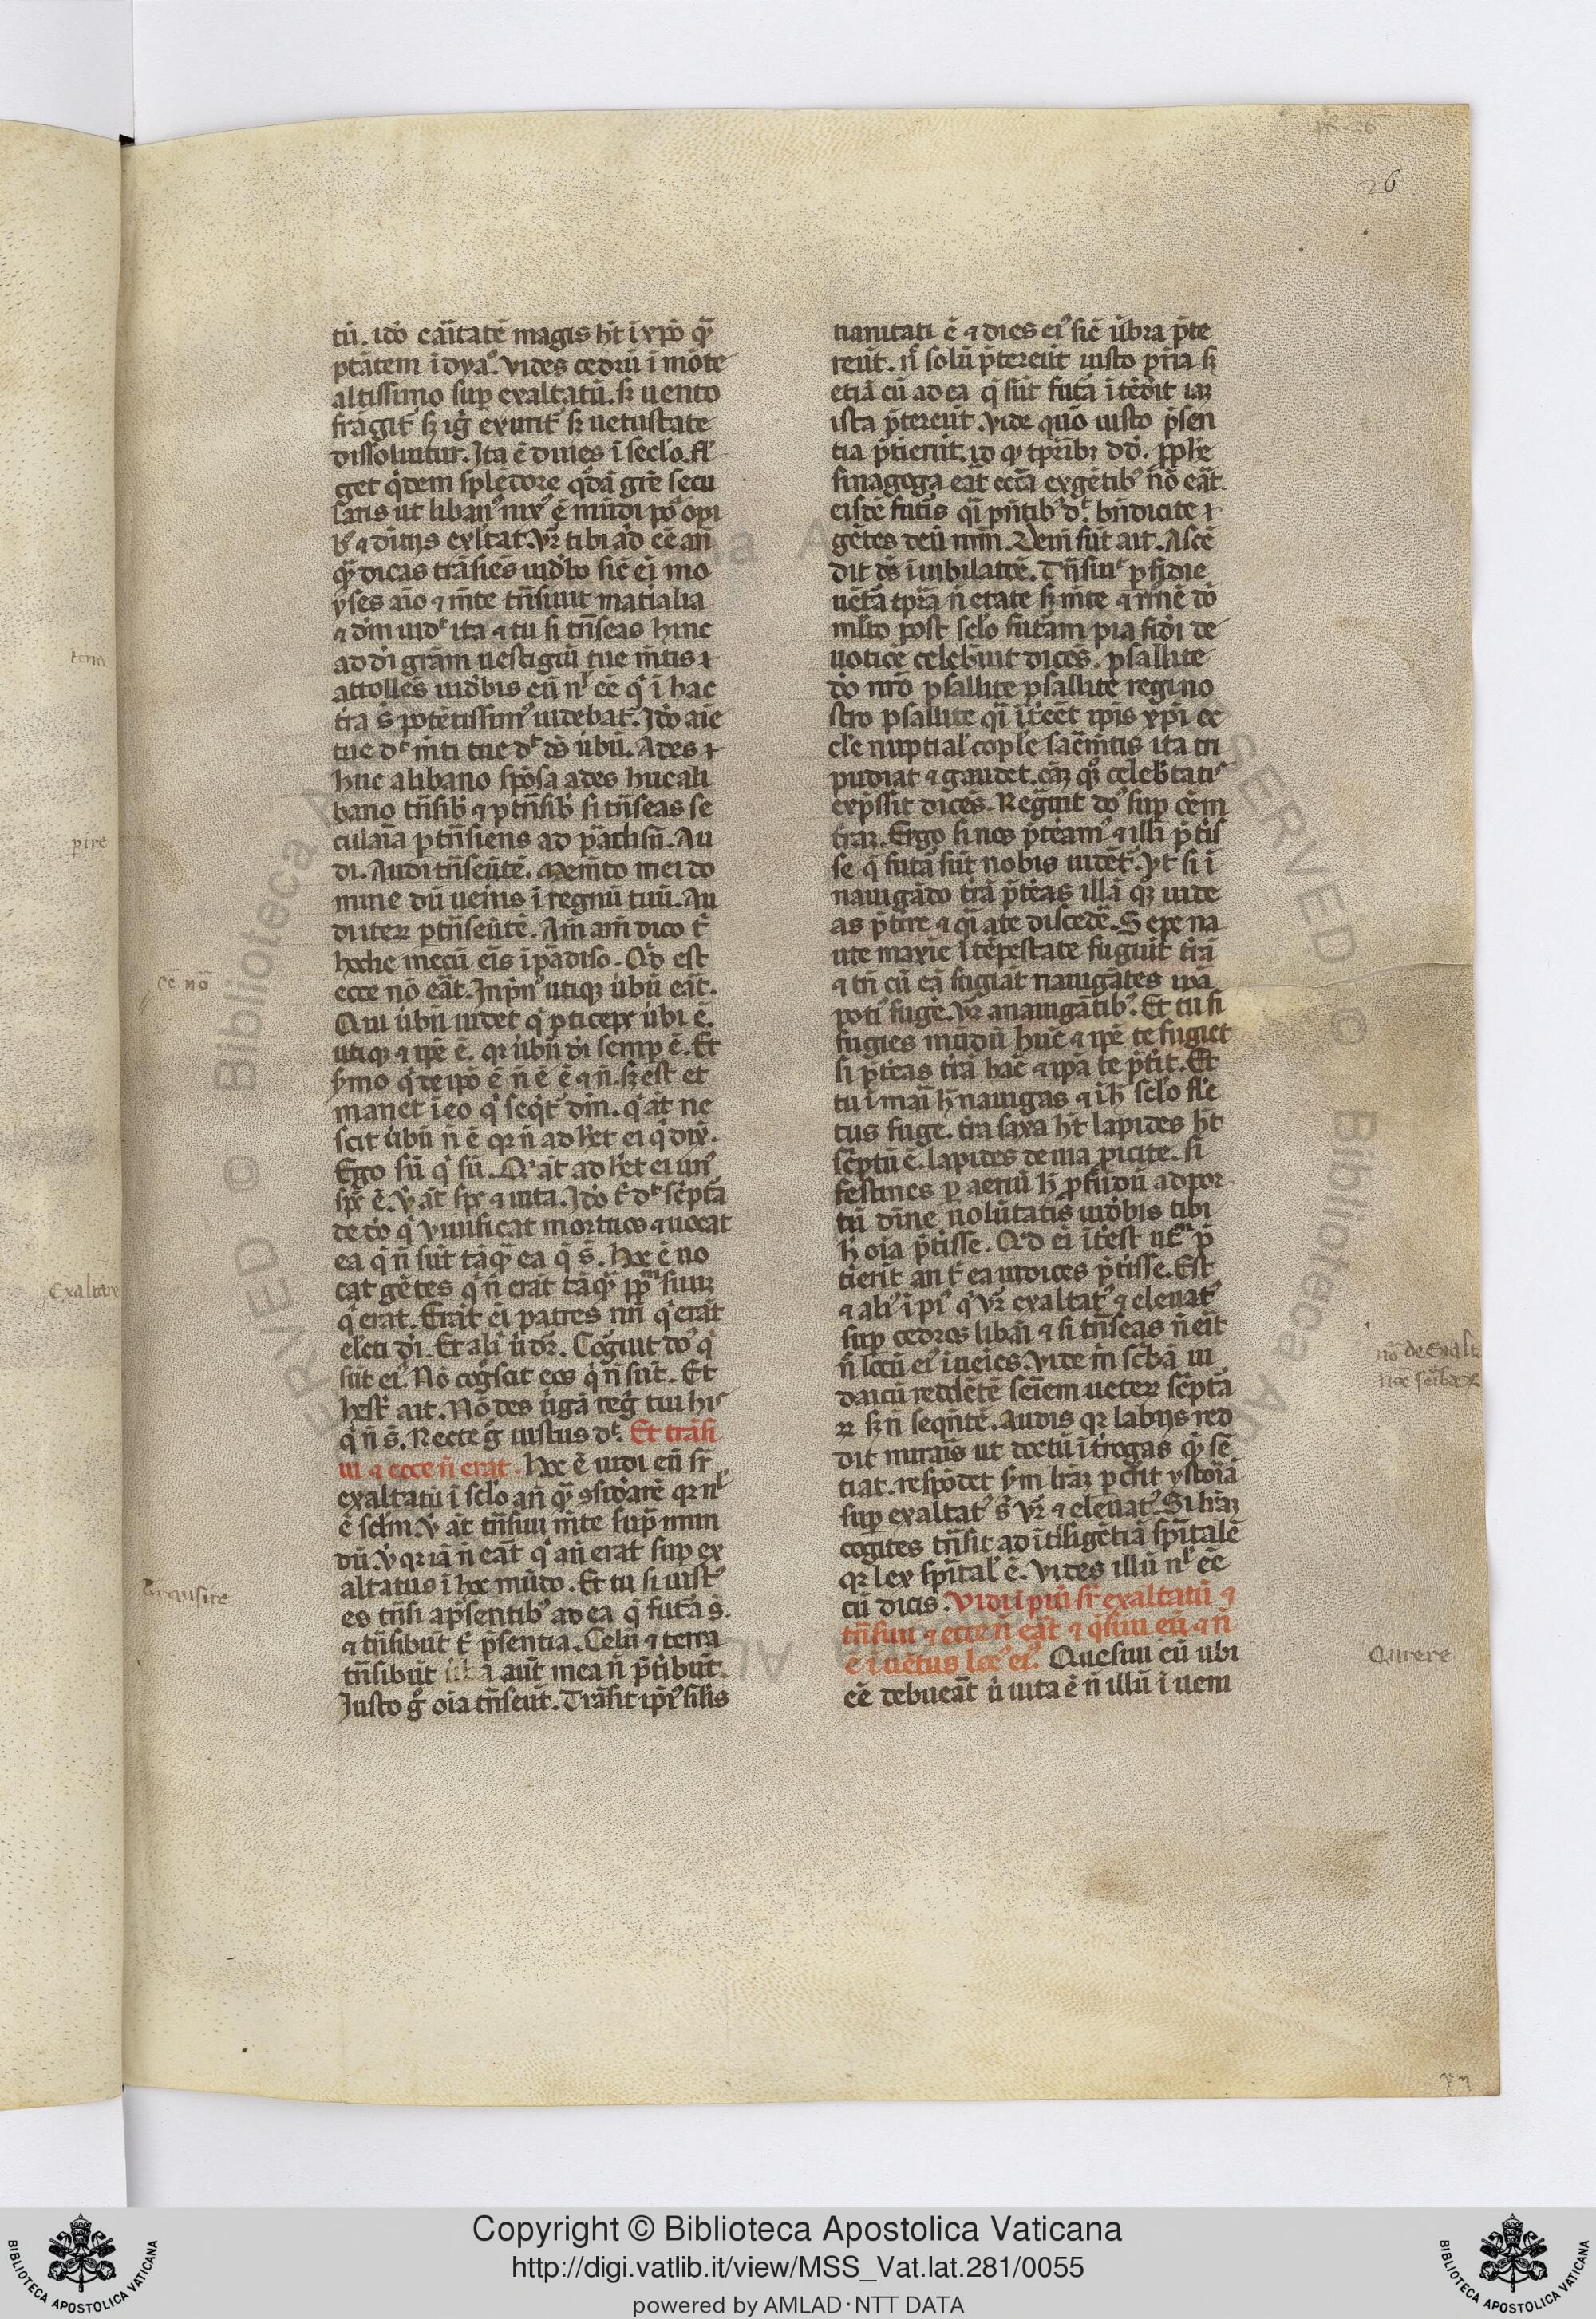 26
tū. ido caritatē magis ht̄ i xpō qͣ
ptātem i dya. Vides cedrū i mōte
altissimo sup exaltatū. sꝫ uento
frāgit sꝫ igī exurit sꝫ uetustate
dissoluitur. Ita ē diues i seclo. fl
get qdem splēdore qdā grē secu
laris ut libanꝰ
⁊ diuitijs exltat. Vr̄ tibi ad eē an̄
qͣ dicas trāsiēs uidebo sic ei mo
yses aīo ⁊ mte tn̄siuit matialia
⁊ dm uidt ita ⁊ tu si tn̄seas hinc
ad di grām uestigiū tue mtis ⁊
attollēs uidebis eū nl eē q i hac
tra s̄ potētissimꝰ uidebat. Ido aīe
tue dt mti tue dt ds ūbū. Ades ⁊
huc a libano sposa ades huc a li
bano tn̄sibis ⁊ ptn̄sibis si tn̄seas se
cularia ptn̄siens ad padisū. Au
di. Audi tn̄seūtē. Memto mei do
mine dū uenis i regnū tuū. Au
di iterꝝ ptn̄seūtē. Am̄ am̄ dico t
hodie mecū eis i padiso. Qd est
ecce no eāt. In pn utiqꝫ ūbū eāt.
Qui ūbū uidet q pticeps ūbi ē.
utiqꝫ ⁊ ipē ē. qr ūbū di semp ē. Et
ymo q de ipo ē n ē ē ⁊ n. sꝫ est et
manet i eo q seqt dm. q āt ne
scit ūbū n ē qr n adhet ei q dix.
Ego sū q sū. Qr āt adhet ei unꝰ
sps ē. ⁊ āt sps ⁊ uita. Ido t dt scpta
de do q uiuificat mortuos ⁊ uocat
ea q n sūt tāqͣ ea q s̄. Hoc ē uo
cat gētes q n erāt tāqͣ pplm suuꝫ
q erat. Erāt ei patres nri q erāt
elcti di. Et alibi dr. Cognouit dꝰ q
sūt eiꝰ. No cogscit eos q n sūt. Et
hest ait. No des uirgā regni tui his
q n s̄. Recte g iustus dt. Et trāsi
ui ⁊ ecce n erat. Hoc ē uidi eū sr
exaltatū i sclo an̄ qͣ ꝯsidarē qr nl
ē sclm. ⁊ āt tn̄siui mte sup mun
dū. ⁊ qr iā n eāt q an̄ erat sup ex
altatus i hoc mūdo. Et tu si iustꝰ
es tn̄si a psentibꝰ ad ea q futa s̄.
⁊ tn̄sibūt t psentia. Celū ⁊ terra
tn̄sibūt ūba aūt mea n ptibūt.
Justo g oīa tn̄seūt. Trāsit ipi similis
uanitati ē ⁊ dies eiꝰ sic ūbra pte
reūt. n solū ptereūt iusto pn̄ia sꝫ
etiā cū ad ea q sūt futa itēdit iaꝫ
ista ptereūt. Vide quo iusto psen
tia ptierūt.
sinagoga eāt eccā ex gētibꝰ no eāt.
eisdē futis qi pn̄tibꝰ dt bn̄dicite ⁊
gētes deū nrm. Deni sūt ait. Ascē
dit ds i iubilatione. Tn̄siuit p fidie
uetā tpra n etate sꝫ mte ⁊ noīe do
mlto post sclo futam pia fidi de
uotiōe celebrauit dicēs. psallite
do nro psallite psallite regi no
stro psallite qi it eēt ipis xpi ec
cle nuptial cople sacmtis ita tri
pudiat ⁊ gaudet. eaꝫ qꝫ celebtatis
exp̄ssit dicēs. Regnauit dꝰ sup oēm
traꝫ. Ergo si nos pteamꝰ ⁊ illi ptis
se q futa sūt nobis uidēt. Vt si i
nauigādo trā pteas illā qꝫ uide
as ptire ⁊ qi a te discedē. Sepe na
ute maxie i tēpestate fugiūt trā
⁊ tn cū eā fugiāt nauigātes ipā
potiꝰ fuge. Vr̄ a nauigātibꝰ. Et tu si
fugies mūdū hūc ⁊ ipē te fugiet
si pteas trā hāc ⁊ ipa te ptit. Et
tu i mari h nauigas ⁊ i h sclo fle
tus fuge. tra saxa ht lapides ht
scptū ē. lapides de uia picite. si
festines p aeriū h pfūdū ad por
tū dīne uolūtatis uidebis tibi
h oīa ptisse. Qd ei itest utm p
tierit an t ea uidices ptisse. Est
⁊ aliꝰ ipiꝰ q Vr̄ exaltatꝰ ⁊ eleuatꝰ
sup cedros libani ⁊ si tn̄seas n eit
n locū eiꝰ iueies. Vide m scibā iu
daicū reddētē seriem ueterꝝ scpta
rꝝ sꝫ n seqntē. Audis qr labijs red
dit murais ut doctū itrogas qͣ sē
tiat. respōdet sm lraꝫ pdcit ystoīā
sup exaltatꝰ s̄ Vr̄ ⁊ eleuatꝰ. Si lraꝫ
cogītes tn̄sit ad itelligētiā spītalē
qr lex spītal ē. Vides illū nl eē
cū dicis. Vidi ipiū sr exaltatū ⁊
tn̄siui ⁊ ecce n eāt ⁊ qsiui eū ⁊ n
ē iuētus locꝰ eiꝰ. Quesiui eū ubi
eē debueāt ū uita ē n illū i uem
Ce no
Exaltare
Querere
Copyright © Biblioteca Apostolica Vaticana
http://digi.vatlib.it/view/MSS_Vat.lat.281/0055
powered by AMLAD·NTT DATA
BIBLIOTECA APOSTOLICA VATICANA
BIBLIOTECA APOSTOLICA VATICANA